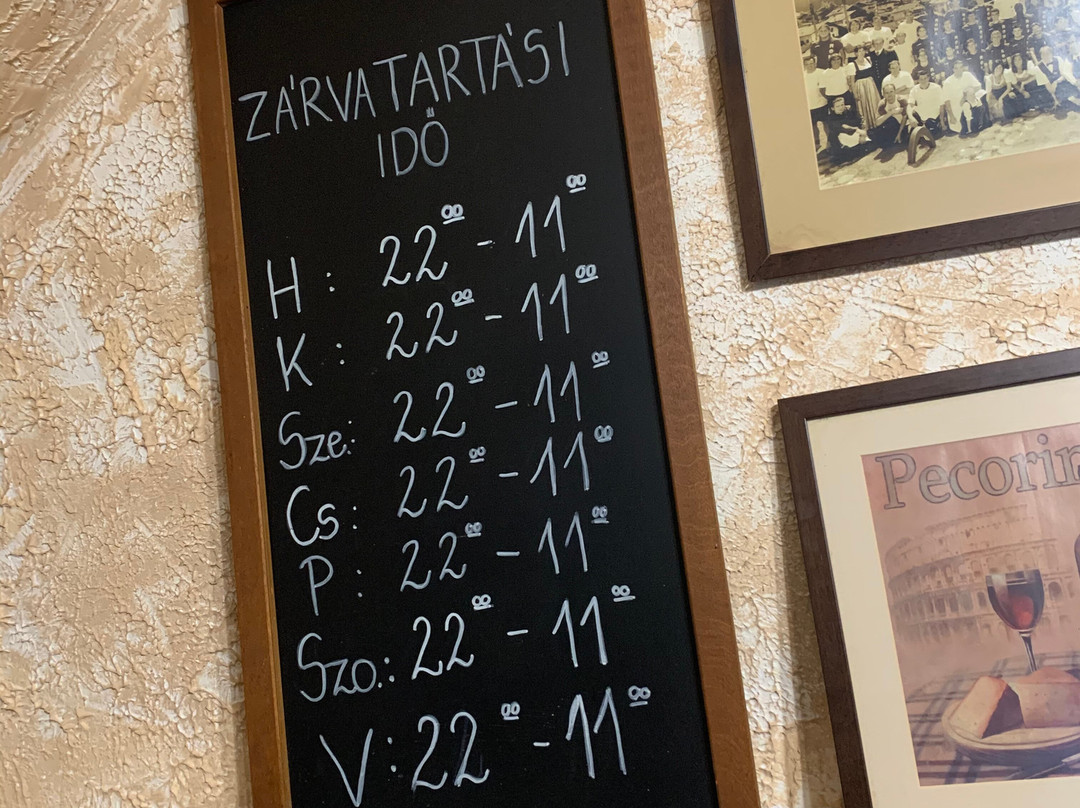 ZÁRVATARTÁSI
IDŐ
H: 22⁰⁰ - 11⁰⁰
K: 22⁰⁰ - 11⁰⁰
Sze.: 22⁰⁰ - 11⁰⁰
Cs: 22⁰⁰ - 11⁰⁰
P: 22⁰⁰ - 11⁰⁰
Szo.: 22⁰⁰ - 11⁰⁰
V: 22⁰⁰ - 11⁰⁰
Pecorin